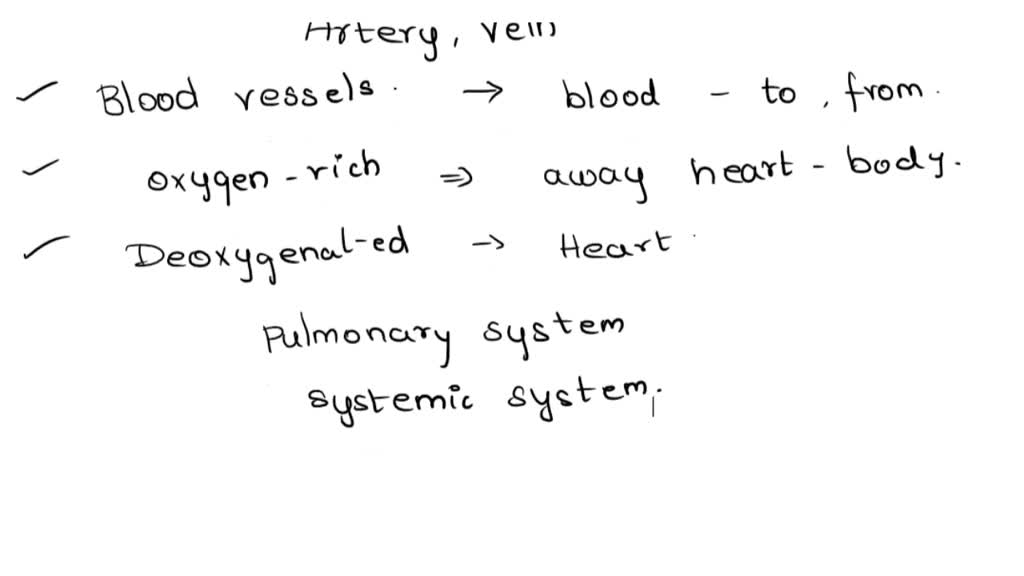 Artery, vein
Blood vessels. → blood - to, from.
oxygen-rich ⇒ away heart - body.
Deoxygenat-ed → Heart.
Pulmonary system
systemic system.